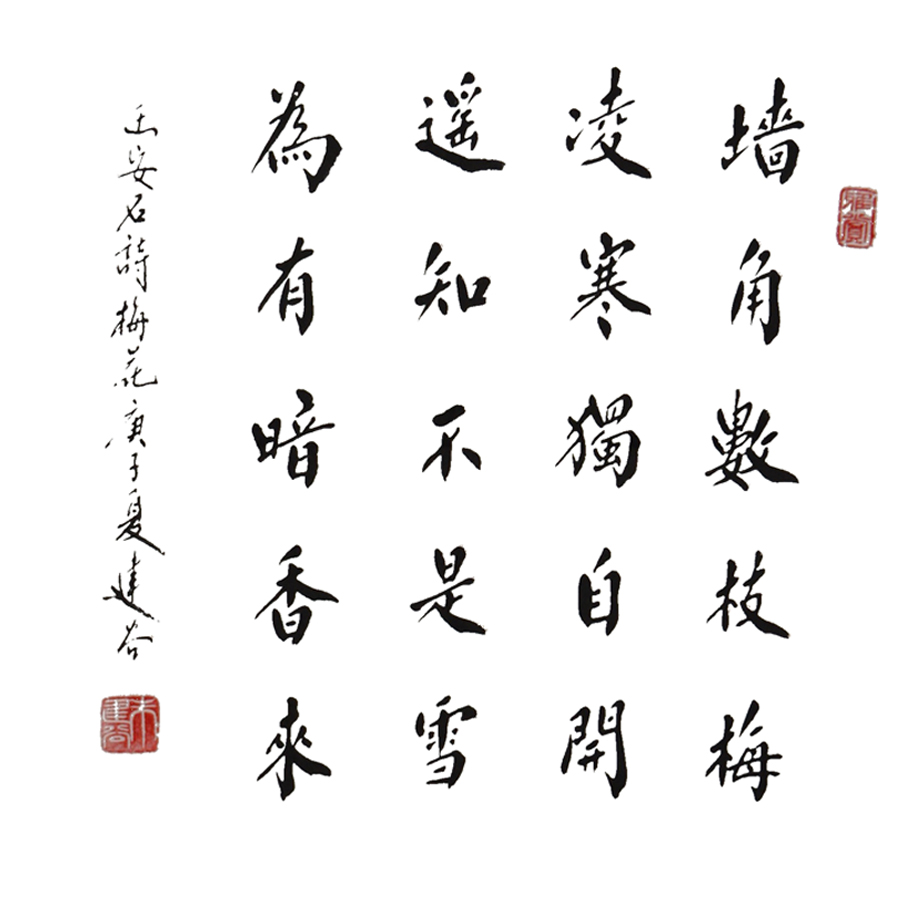 墙角數枝梅
凌寒獨自開
遥知不是雪
為有暗香來
王安石詩梅花庚子夏建谷